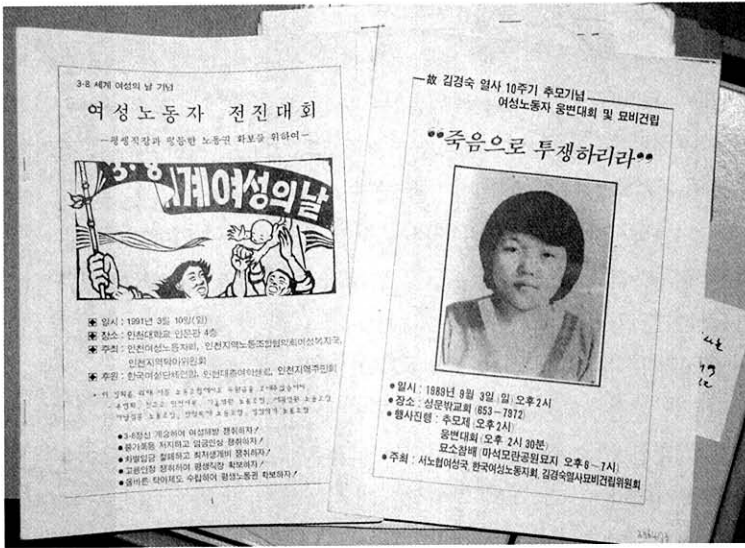 3·8 세계 여성의 날 기념
여성노동자 전진대회
─평생직장과 평등한 노동권 확보를 위하여─
3·8 세계여성의날
일시 : 1991년 3월 10일(일)
장소 : 인천대학교 인문관 4층
주최 : 인천여성노동자회, 인천지역노동조합협의회여성복지국,
인천지역탁아위원회
후원 : 한국여성단체연합,
●3·8정신 계승하여 여성해방 쟁취하자!
●물가폭등 저지하고 임금인상 쟁취하자!
●차별임금 철폐하고 최저생계비 쟁취하자!
●고용안정 쟁취하여 평생직장 확보하자!
●올바른 탁아제도 수립하여 평생노동권 확보하자!
故 김경숙 열사 10주기 추모기념
여성노동자 웅변대회 및 묘비건립
"죽음으로 투쟁하리라"
●일시 : 1989년 9월 3일(일) 오후 2시
●장소 : 성문밖교회 (653-7972)
●행사진행 : 추모제 (오후 2시)
웅변대회 (오후 2시 30분)
묘소참배 (마석모란공원묘지 오후 6~7시)
●주최 : 서노협여성국, 한국여성노동자회, 김경숙열사묘비건립위원회